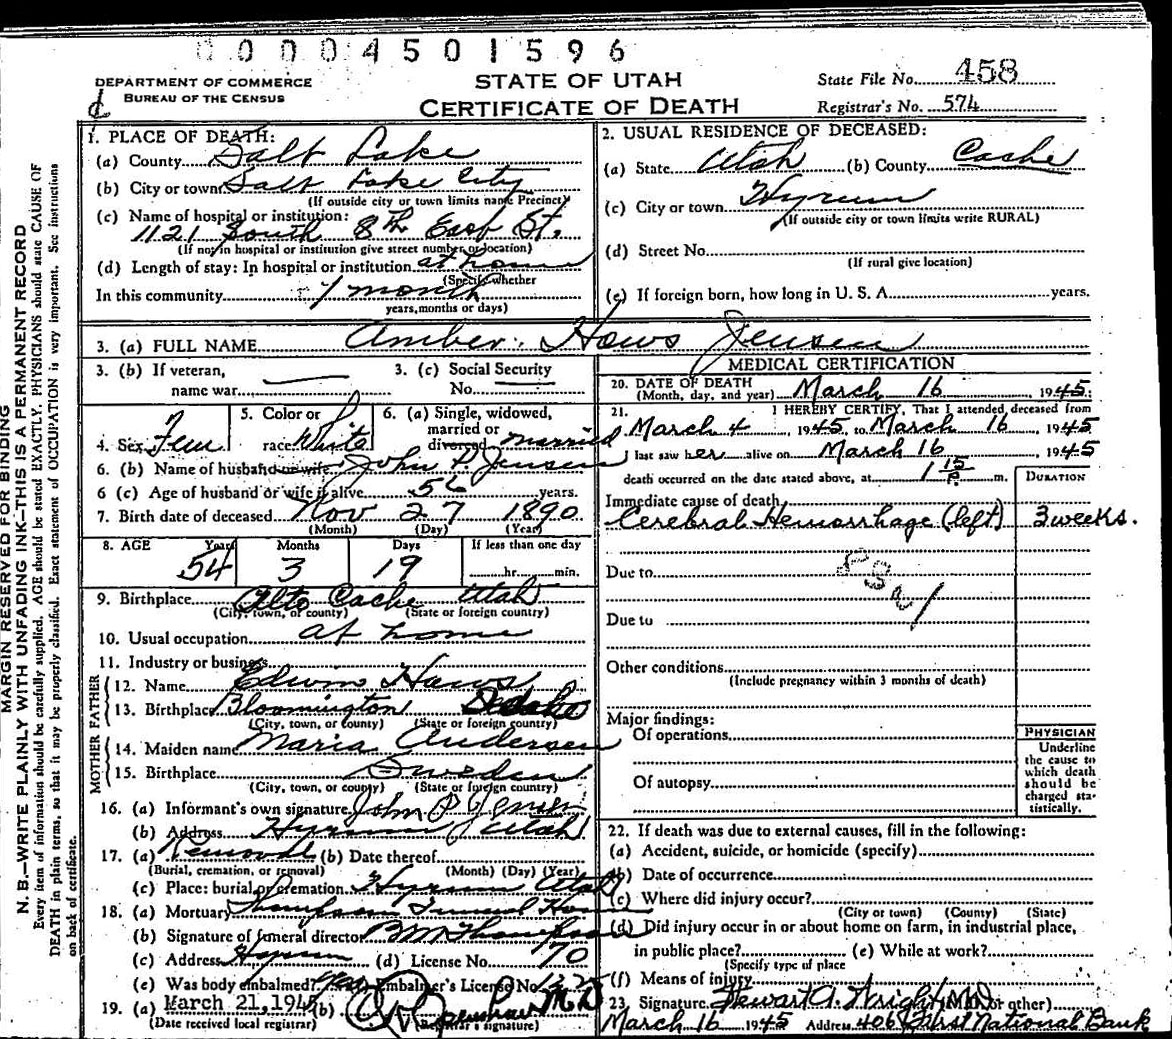 0 0 0 4 5 0 1 5 9 6
DEPARTMENT OF COMMERCE
BUREAU OF THE CENSUS
STATE OF UTAH
CERTIFICATE OF DEATH
State File No. 458
Registrar's No. 574
1. PLACE OF DEATH:
(a) County Salt Lake
(b) City or town Salt Lake City
(If outside city or town limits name Precinct)
(c) Name of hospital or institution:
1121 South 8th East St.
(If not in hospital or institution give street number or location)
(d) Length of stay: In hospital or institution at home
(Specify whether
In this community 1 month
years, months or days)
2. USUAL RESIDENCE OF DECEASED:
(a) State Utah (b) County Cache
(c) City or town Hyrum
(If outside city or town limits write RURAL)
(d) Street No.
(If rural give location)
(e) If foreign born, how long in U. S. A. years.
3. (a) FULL NAME Amber Haws Jensen
3. (b) If veteran,
name war
3. (c) Social Security
No.
4. Sex Fem
5. Color or
race White
6. (a) Single, widowed,
married or
divorced married
6. (b) Name of husband or wife John P. Jensen
6 (c) Age of husband or wife if alive 56 years.
7. Birth date of deceased Nov 27 1890
(Month) (Day) (Year)
8. AGE Years Months Days If less than one day
54 3 19 hr. min.
9. Birthplace Alto Cache Utah
(City, town, or county) (State or foreign country)
10. Usual occupation at home
11. Industry or business
FATHER
12. Name Edwin Haws
13. Birthplace Bloomington
(City, town, or county) (State or foreign country)
MOTHER
14. Maiden name Maria Andersen
15. Birthplace Sweden
(City, town, or county) (State or foreign country)
16. (a) Informant's own signature John P. Jensen
(b) Address Hyrum Utah
17. (a) Removal (b) Date thereof
(Burial, cremation, or removal) (Month) (Day) (Year)
(c) Place: burial or cremation Hyrum Utah
18. (a) Mortuary Thompson Funeral Home
(b) Signature of funeral director B M Thompson
(c) Address Hyrum (d) License No. 70
(e) Was body embalmed? Yes Embalmer's License No.
19. (a) March 21, 1945 (b) M.D
(Date received local registrar) (Registrar's signature)
MEDICAL CERTIFICATION
20. DATE OF DEATH
(Month, day, and year) March 16 1945
21. I HEREBY CERTIFY, That I attended deceased from
March 4 1945, to March 16, 1945
I last saw her alive on March 16, 1945
death occurred on the date stated above, at 1 15 P. m.
DURATION
Immediate cause of death
Cerebral Hemorrhage (left) 3 weeks.
Due to
Due to
Other conditions
(Include pregnancy within 3 months of death)
Major findings:
Of operations
Of autopsy
PHYSICIAN
Underline
the cause to
which death
should be
charged sta-
tistically.
22. If death was due to external causes, fill in the following:
(a) Accident, suicide, or homicide (specify)
(b) Date of occurrence
(c) Where did injury occur?
(City or town) (County) (State)
(d) Did injury occur in or about home on farm, in industrial place,
in public place? (e) While at work?
(Specify type of place
(f) Means of injury
23. Signature Stewart A. Wright (M.D. or other)
March 16 1945 Address 406 First National Bank
MARGIN RESERVED FOR BINDING
N. B.—WRITE PLAINLY WITH UNFADING INK—THIS IS A PERMANENT RECORD
Every item of information should be carefully supplied. AGE should be stated EXACTLY. PHYSICIANS should state CAUSE OF
DEATH in plain terms, so that it may be properly classified. Exact statement of OCCUPATION is very important. See instructions
on back of certificate.